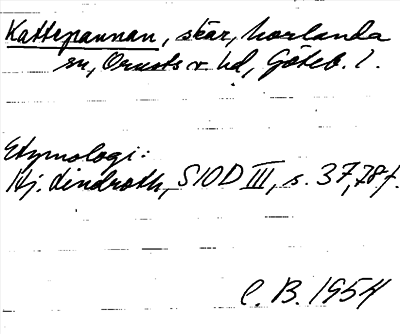 Kattepannan, skär, Morlanda
sn, Orusts v hd, Göteb. l.
Etymologi:
Hj. Lindroth, SIOD III, s. 37, 78 f.
C. B. 1954